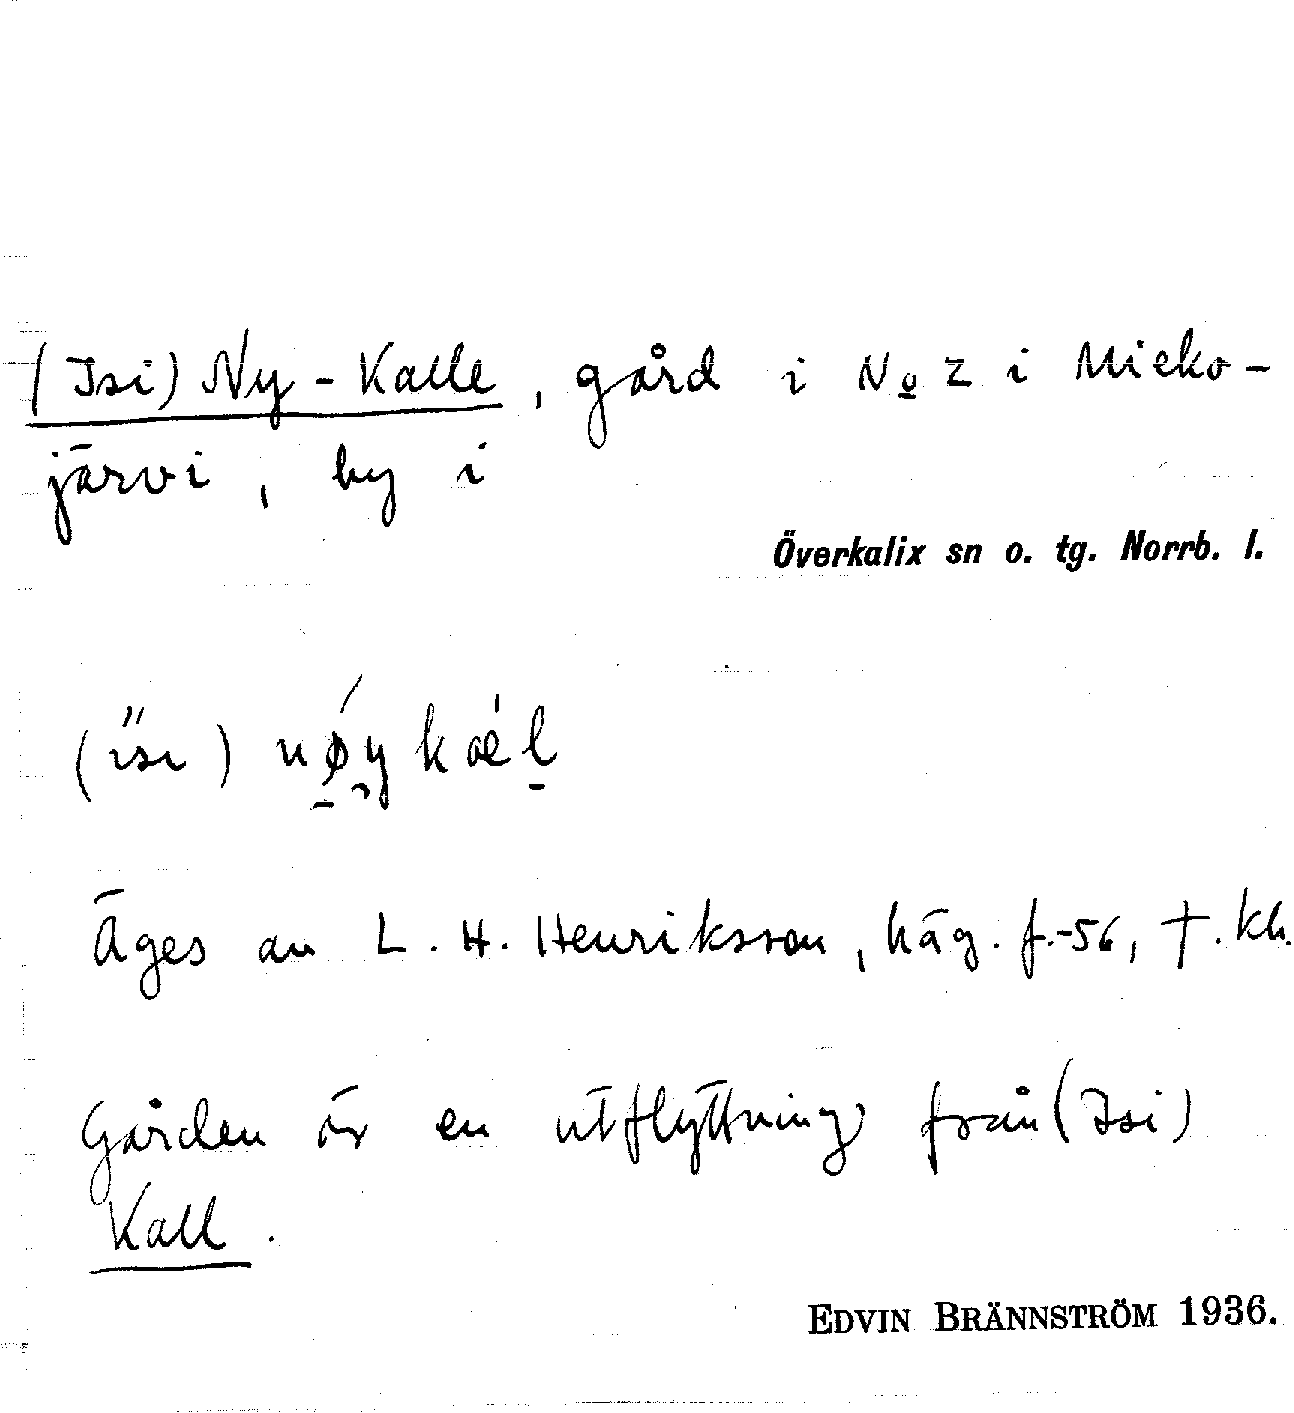 (Isi) Ny-Kalle, gård i No 2 i Mieko-
järvi, by i
Överkalix sn o. tg. Norrb. l.
(i̋si) nǿykǽl
Äges av L. H. Henriksson, häg. f.-56, †. kh.
Gården är en utflyttning från (Isi)
Kall.
EDVIN BRÄNNSTRÖM 1936.